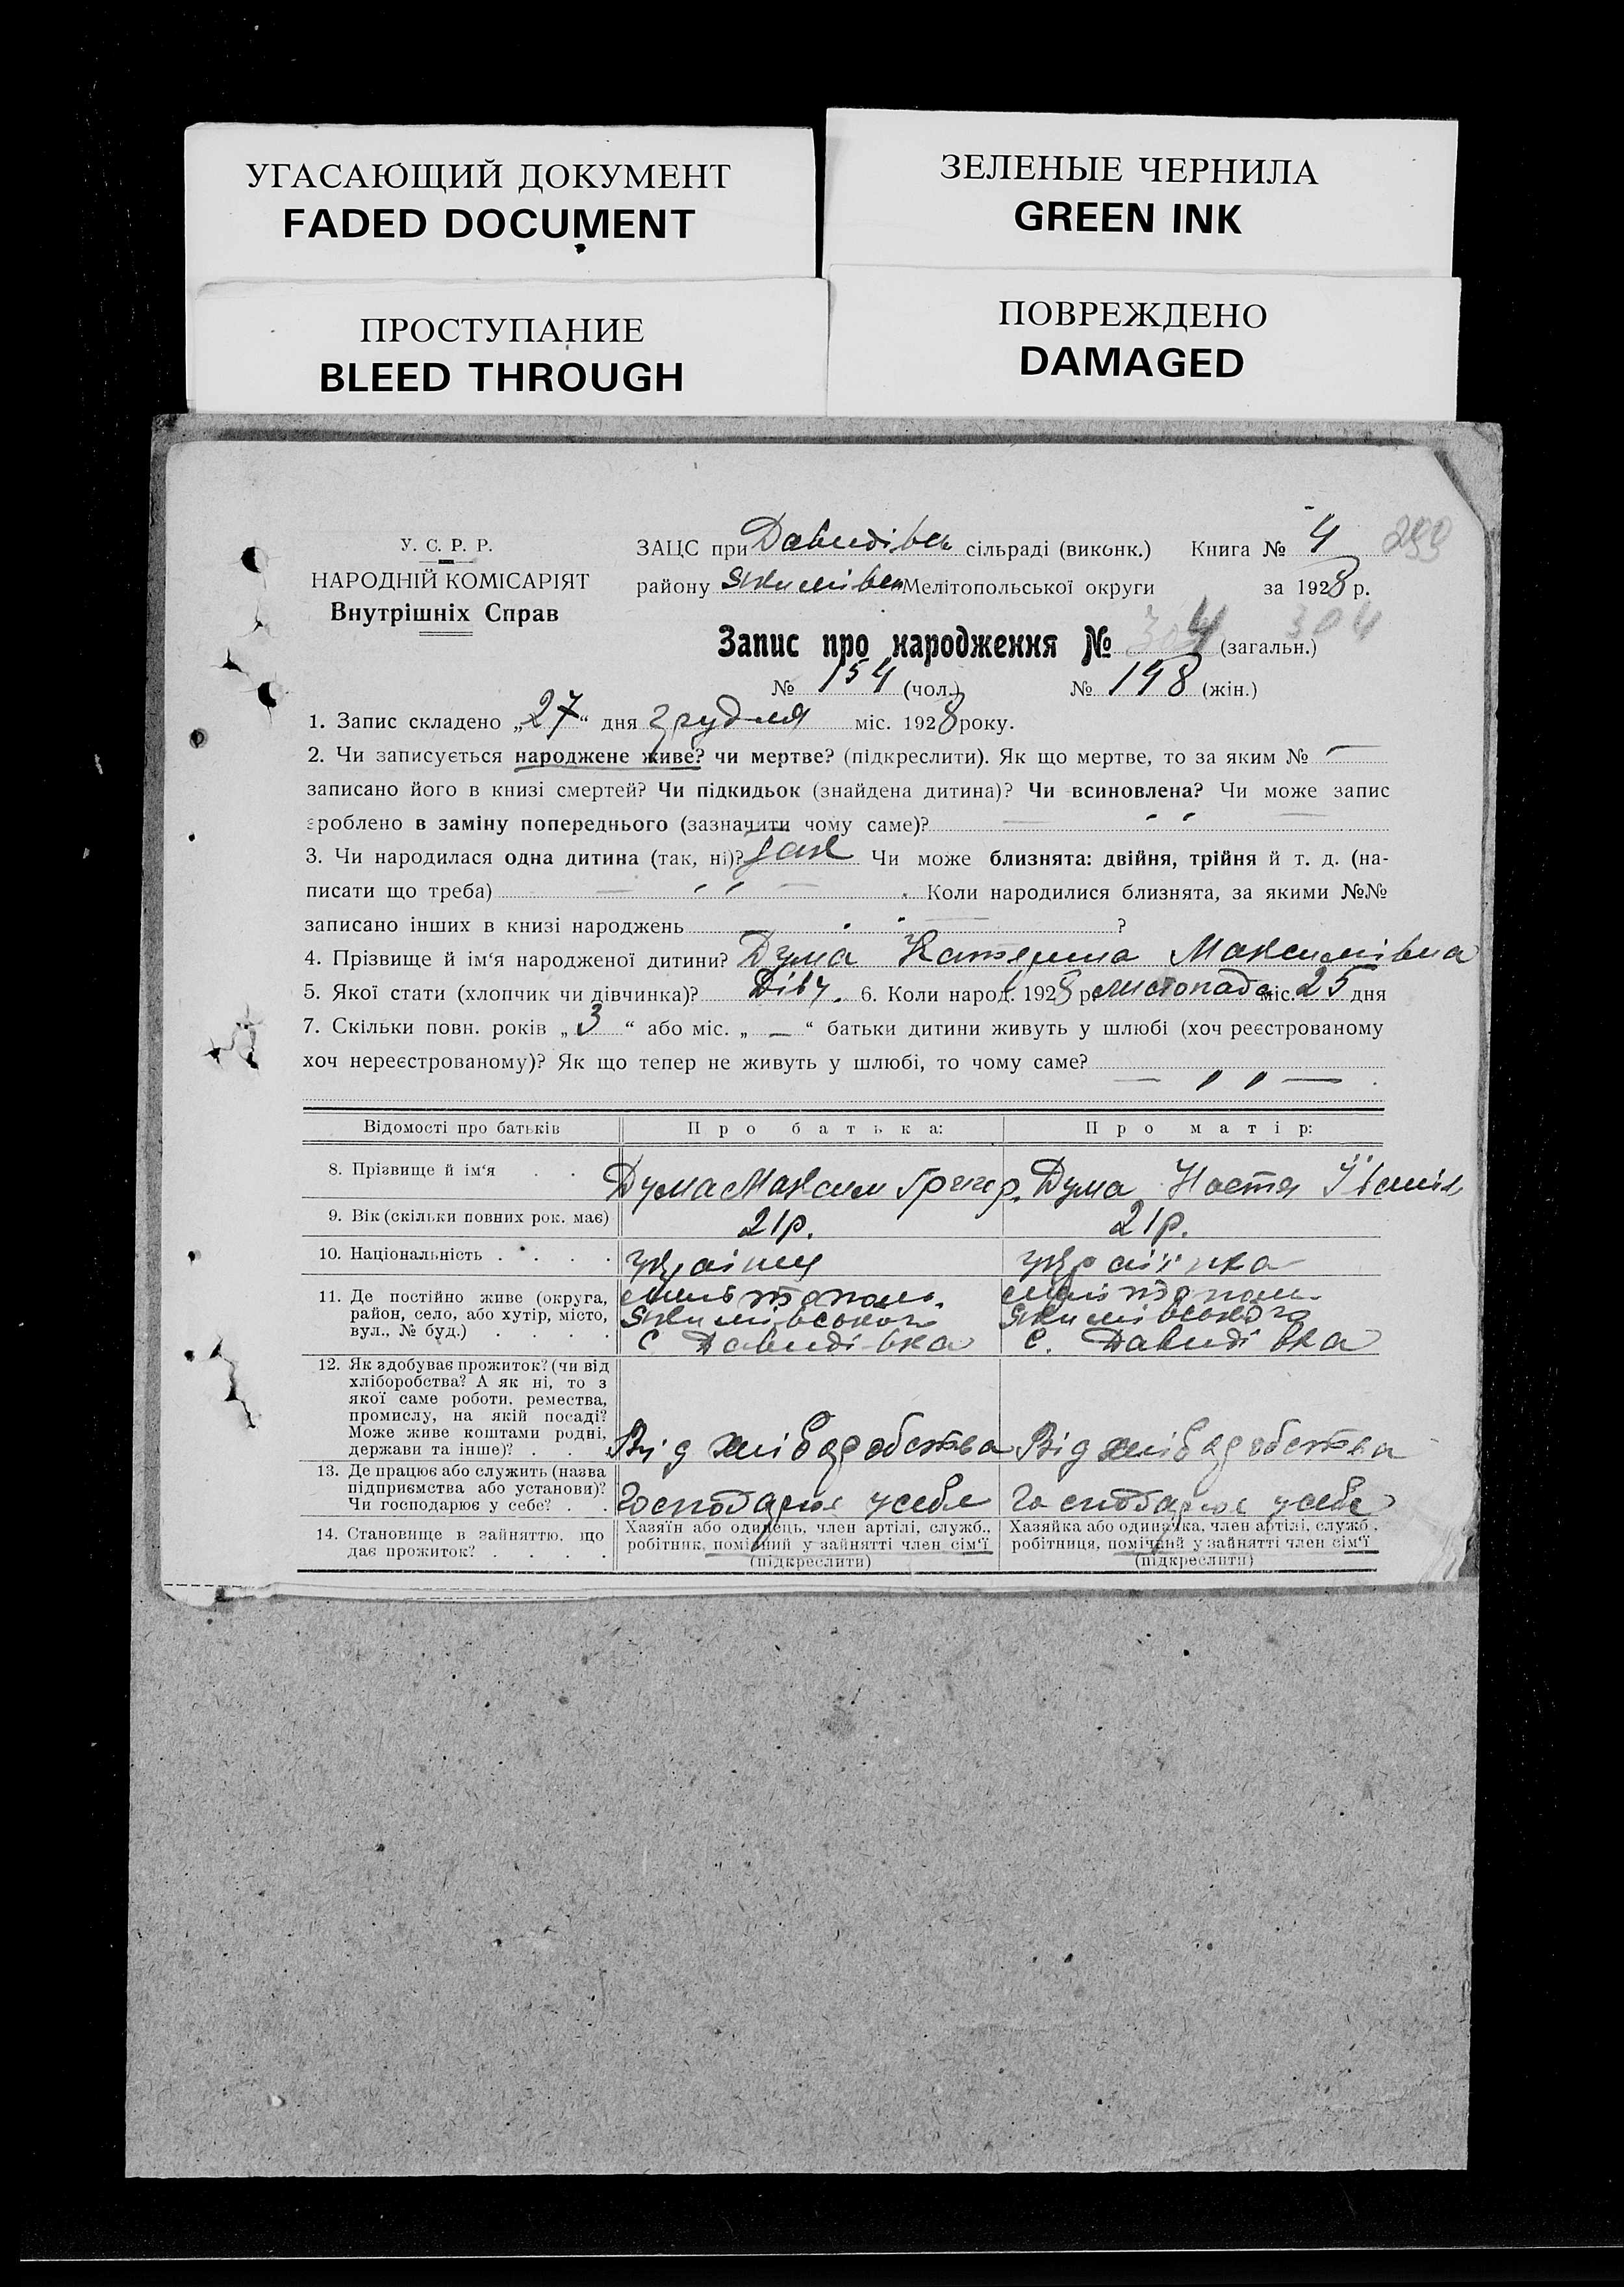 УГАСАЮЩИЙ ДОКУМЕНТ
FADED DOCUMENT
ЗЕЛЕНЫЕ ЧЕРНИЛА
GREEN INK
ПРОСТУПАНИЕ
BLEED THROUGH
ПОВРЕЖДЕНО
DAMAGED
У. С. Р. Р.
НАРОДНІЙ КОМІСАРІЯТ
Внутрішніх Справ
ЗАЦС при Давидівск сільраді (виконк.) Книга № 4 299
району Якимівськ Мелітопольської округи за 1928 р.
Запис про народження № 304 (загальн.) 304
№ 154 (чол.) № 148 (жін.)
1. Запис складено „27“ дня грудня міс. 1928 року.
2. Чи записується народжене живе? чи мертве? (підкреслити). Як що мертве, то за яким № —
записано його в книзі смертей? Чи підкидьок (знайдена дитина)? Чи всиновлена? Чи може запис
зроблено в заміну попереднього (зазначити чому саме)? — " —
3. Чи народилася одна дитина (так, ні)? так Чи може близнята: двійня, трійня й т. д. (на-
писати що треба) — " — . Коли народилися близнята, за якими №№
записано інших в книзі народжень — ?
4. Прізвище й ім'я народженої дитини? Дума Катерина Максимівна
5. Якої стати (хлопчик чи дівчинка)? Дівч. 6. Коли народ. 1928 р. листопада міс. 25 дня
7. Скільки повн. років „3“ або міс. „—“ батьки дитини живуть у шлюбі (хоч реєстрованому
хоч нереєстрованому)? Як що тепер не живуть у шлюбі, то чому саме? — " — .
Відомості про батьків Про батька: Про матір:
8. Прізвище й ім'я . . Дума Максим Григор. Дума Настя
9. Вік (скільки повних рок. має) 21р. 21р.
10. Національність . . . . українц українка
11. Де постійно живе (округа,
район, село, або хутір, місто,
вул., № буд.) . . . .
Мелітополь. Мелітополь.
Якимівського Якимівського
с. Давидівка с. Давидівка
12. Як здобуває прожиток? (чи від
хліборобства? А як ні, то з
якої саме роботи, ремества,
промислу, на якій посаді?
Може живе коштами родні,
держави та інше)? . . .
Від хліборобства Від хліборобства
13. Де працює або служить (назва
підприємства або установи)?
Чи господарює у себе? . .
Господарює у себе Господарює у себе
14. Становище в зайняттю, що
дає прожиток? . . . .
Хазяїн або одинець, член артілі, служб.,
робітник, помічний у зайнятті член сім'ї
(підкреслити)
Хазяйка або одиначка, член артілі, служб.,
робітниця, помічний у зайнятті член сім'ї
(підкреслити)